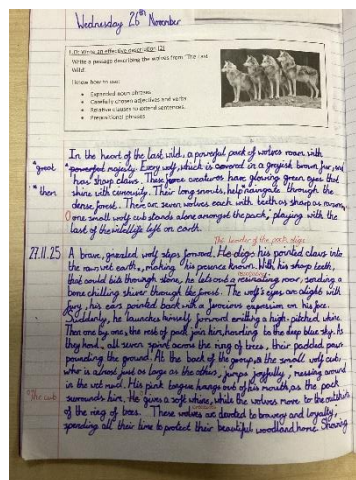 Wednesday 26th November
L.O: Write an effective description (2)
Write a passage describing the wolves from 'The Last
Wild'.
I know how to use:
Expanded noun phrases
Carefully chosen adjectives and verbs
Relative clauses to extend sentences.
Prepositional phrases
In the heart of the last wild, a powerful pack of wolves roam with
"great" powerful majesty. Every wolf, which is covered in a greyish brown fur, and
has sharp claws. These creatures have glowing green eyes that
"then" shine with curiosity. Their long snouts, help navigate through the
dense forest. There are seven wolves each with teeth as sharp as razors,
one small wolf cub stands alone amongst the pack, playing with the
last of the wildlife left on earth.
The leader of the pack digs
27.11.25 A brave, grizzled wolf steps forward. He digs his pointed claws into
the raw wet earth, making his presence known. With his sharp teeth,
that could bite through stone, he lets out a resounding roar, sending a
bone chilling shiver through the forest. The wolf's eyes are alight with
fury, his ears pointed back with a ferocious expression on his face.
Suddenly, he launches himself forward emitting a high-pitched whine.
Then one by one, the rest of pack join him, howling to the deep blue sky. As
they howl, all seven sprint across the ring of trees, their padded paws
pounding the ground. At the back of the group, is the small wolf cub,
who is almost just as large as the others, jumps joyfully, messing around
in the wet mud. His pink tongue hangs out of his mouth, as the pack
The cub surrounds him. He gives a soft whine, while the wolves move to the outskirts
of the ring of trees. These wolves are devoted to bravery and loyalty,
spending all their time to protect their beautiful woodland home. Sharing